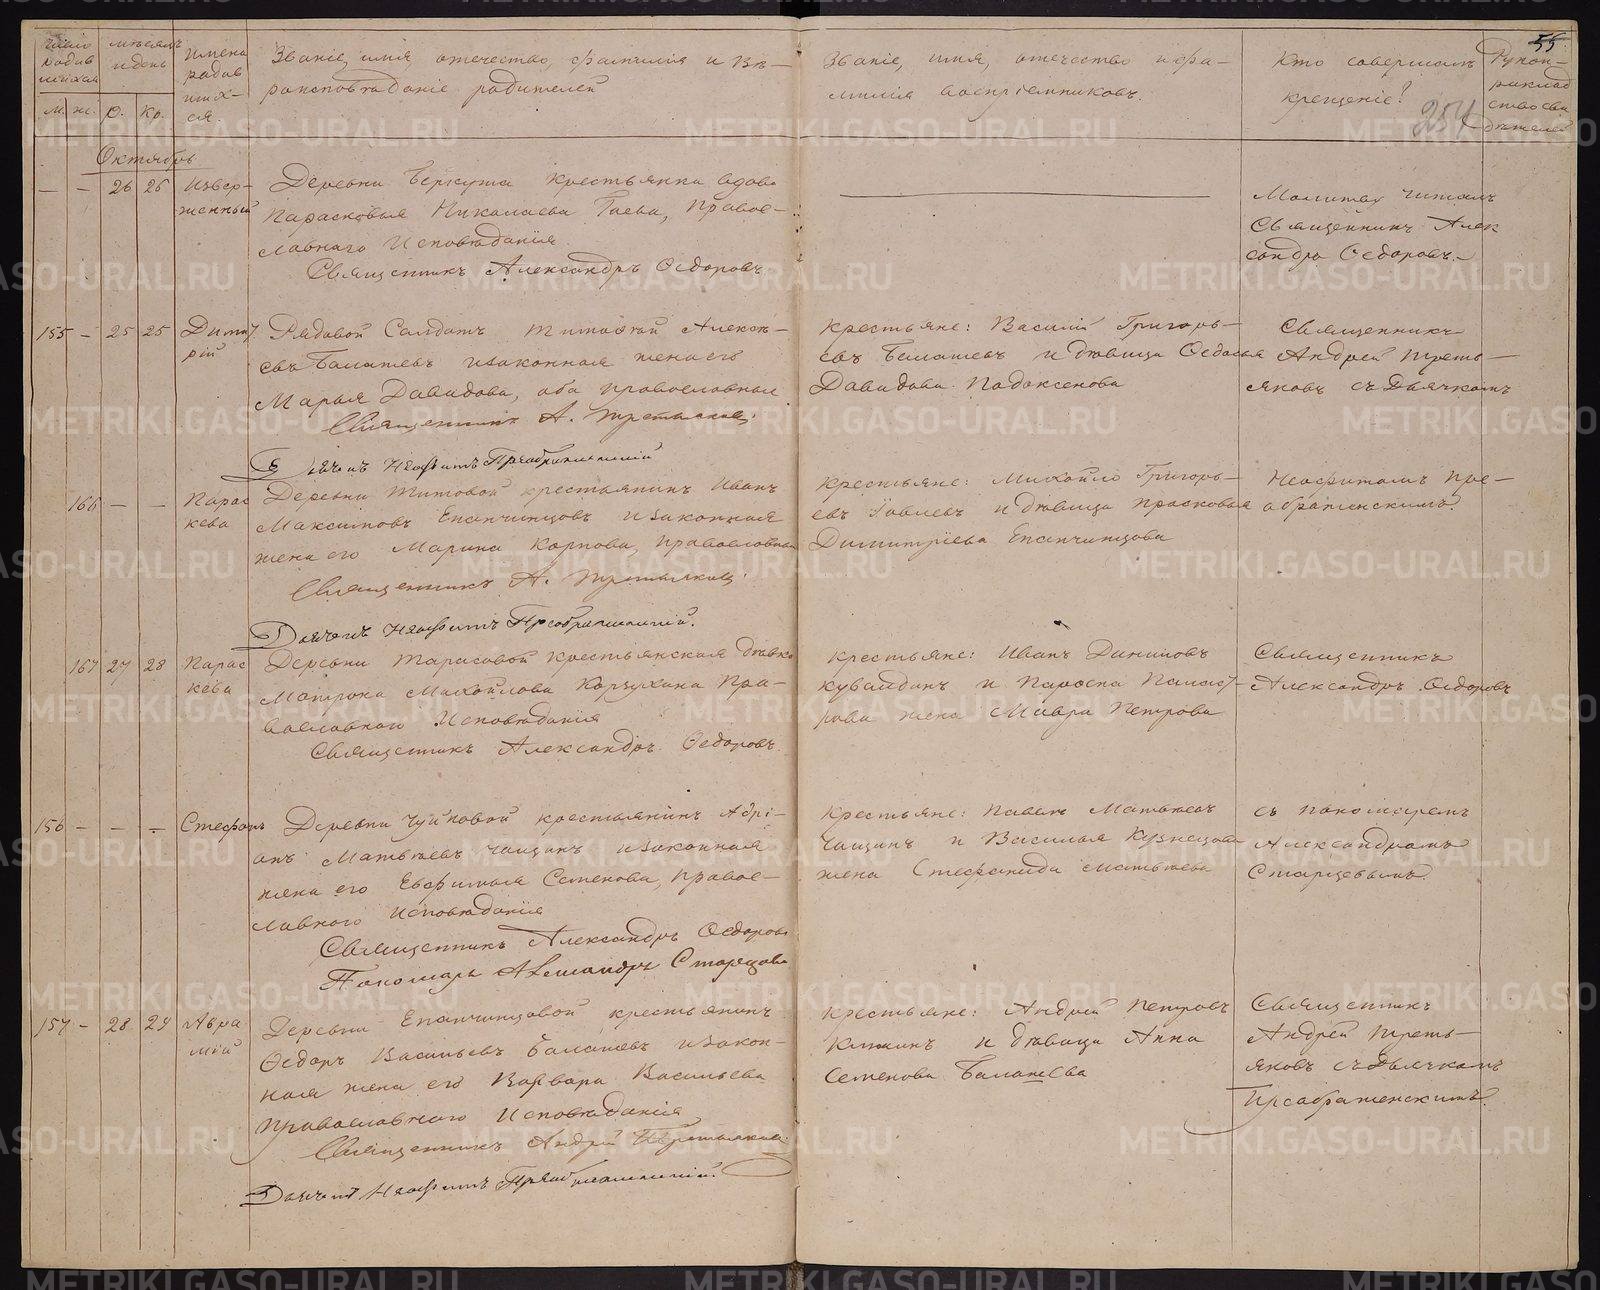 Число родив шихся
Мѣсяцъ и день
Имена родив ших- ся.
Званіе, имя, отчество, фамилія и вѣ-
роисповѣданіе родителей
Званіе, имя, отчество и фа-
милія воспріемниковъ.
Кто совершалъ
крещеніе?
Рукоп- риклад ство сви дѣтелей
55
254
м. ж. р. кр.
Октябрь
— — 26 26 Извер- женный
Деревни крестьянка вдова
Парасковья Николаева Гаева, Правос-
лавнаго Исповѣданія
Священникъ Александръ Ѳедоровъ
Молитву читалъ
Священникъ Алек
сандръ Ѳедоровъ.
155 — 25 25 Димит рій
Рядовой Солдатъ Тимофей Алексѣ-
евъ Балашевъ и законная жена его
Марья Давидова, оба православные
Священникъ А. Третьяковъ.
Дьячекъ Неофитъ Преображенскій
Крестьяне: Василій Григорь-
евъ Балашевъ и дѣвица Ѳедосья
Давидова
Священникъ
Андрей Треть-
яковъ съ Дьячкомъ
166 — — Парас кева
Деревни Титовой крестьянинъ Иванъ
Максимовъ Епанчинцовъ и законная
жена его Марина Карпова, православные
Священникъ А. Третьяковъ.
Дьячекъ Неофитъ Преображенскій.
Крестьяне: Михайло Григорь-
евъ и дѣвица Прасковья
Димитріева Епанчинцова
Неофитомъ Пре-
ображенскимъ.
167 27 28 Парас кева
Деревни Тарасовой крестьянская дѣвка
Матрона Михайлова Корзухина Пра-
вославнаго Исповѣданія
Священникъ Александръ Ѳедоровъ.
Крестьяне: Иванъ Даниловъ
Кувалдинъ и
жена Мавра Петрова
Священникъ
Александръ Ѳедоровъ
156 — — — Стефанъ
Деревни Чуйковой крестьянинъ Адрі-
анъ Матвѣевъ Чащинъ и законная
жена его Евфимья Семенова, Правос-
лавнаго исповѣданія
Священникъ Александръ Ѳедоровъ
Пономарь Александръ Старцовъ
Крестьяне: Павелъ Матвѣевъ
Чащинъ и Василья Кузнецова
жена Стефанида Матвѣева
съ пономаремъ
Александромъ
Старцевымъ.
157 — 28 29 Авра мій
Деревни Епанчинцовой крестьянинъ
Ѳедоръ Васильевъ Балашевъ и закон-
ная жена его Варвара Васильева
православнаго Исповѣданія
Священникъ Андрей Третьяковъ.
Дьячекъ Неофитъ Преображенскій.
Крестьяне: Андрей Петровъ
и дѣвица Анна
Семенова Балашева
Священникъ
Андрей Треть-
яковъ съ Дьячкомъ
Преображенскимъ.
METRIKI.GASO-URAL.RU